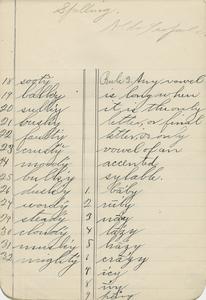 Spelling.
18 sooty
19 balky
20 sulky
21 bushy
22 faulty
23 rusty
24 moody
25 bulky
26 dusky
27 wordy
28 steady
30 cloudy
31 mushy
32 mighty
Rule 3. Any vowel
is long when
it is the only
letter, or final
letter, or only
vowel of an
accented
sylable.
1 baby
2 ruby
3 navy
4 lazy
5 hazy
6 crazy
7 icy
8 ivy
9